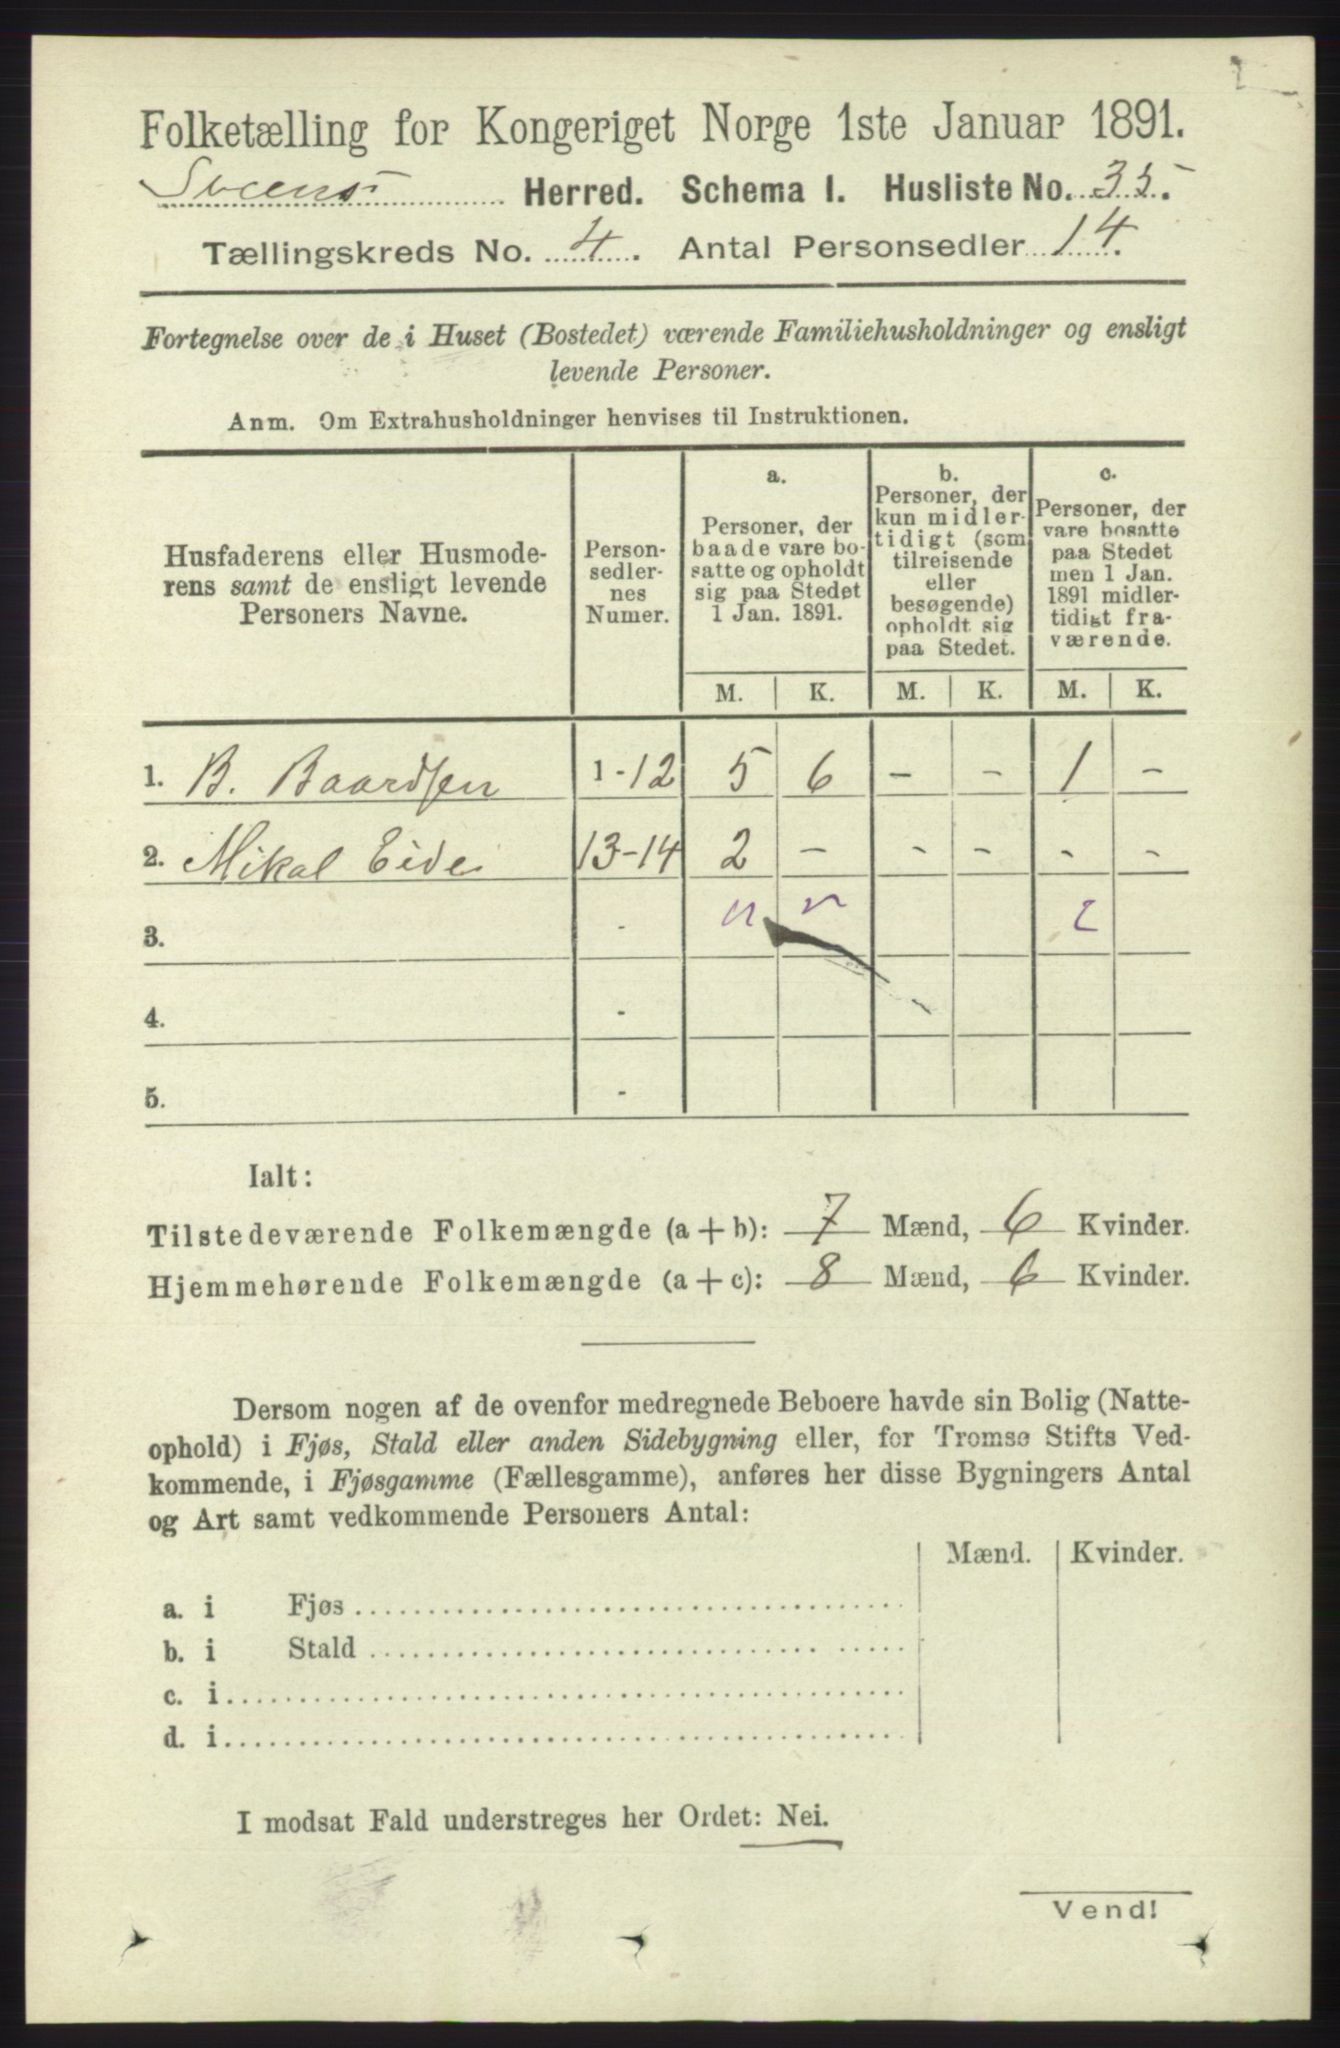 Folketælling for Kongeriget Norge 1ste Januar 1891.
Herred. Schema I. Husliste No. 35.
Tællingskreds No. 4. Antal Personsedler 14.
Fortegnelse over de i Huset (Bostedet) værende Familiehusholdninger og ensligt
levende Personer.
Anm. Om Extrahusholdninger henvises til Instruktionen.
Husfaderens eller Husmode-
rens samt de ensligt levende
Personers Navne.
Person-
sedler-
nes
Numer.
a.
Personer, der
baade vare bo-
satte og opholdt
sig paa Stedet
1 Jan. 1891.
b.
Personer, der
kun midler-
tidigt (som
tilreisende
eller
besøgende)
opholdt sig
paa Stedet.
c.
Personer, der
vare bosatte
paa Stedet
men 1 Jan.
1891 midler-
tidigt fra-
værende.
M. K. M. K. M. K.
1. B. Baardsen 1-12 5 6 - - 1 -
2. Mikal Eide 13-14 2 - - - - -
3. -
4. -
5. -
Ialt:
Tilstedeværende Folkemængde (a + b): 7 Mænd, 6 Kvinder.
Hjemmehørende Folkemængde (a + c): 8 Mænd, 6 Kvinder.
Dersom nogen af de ovenfor medregnede Beboere havde sin Bolig (Natte-
ophold) i Fjøs, Stald eller anden Sidebygning eller, for Tromsø Stifts Ved-
kommende, i Fjøsgamme (Fællesgamme), anføres her disse Bygningers Antal
og Art samt vedkommende Personers Antal:
Mænd. Kvinder.
a. i Fjøs
b. i Stald
c. i
d. i
I modsat Fald understreges her Ordet: Nei.
Vend!